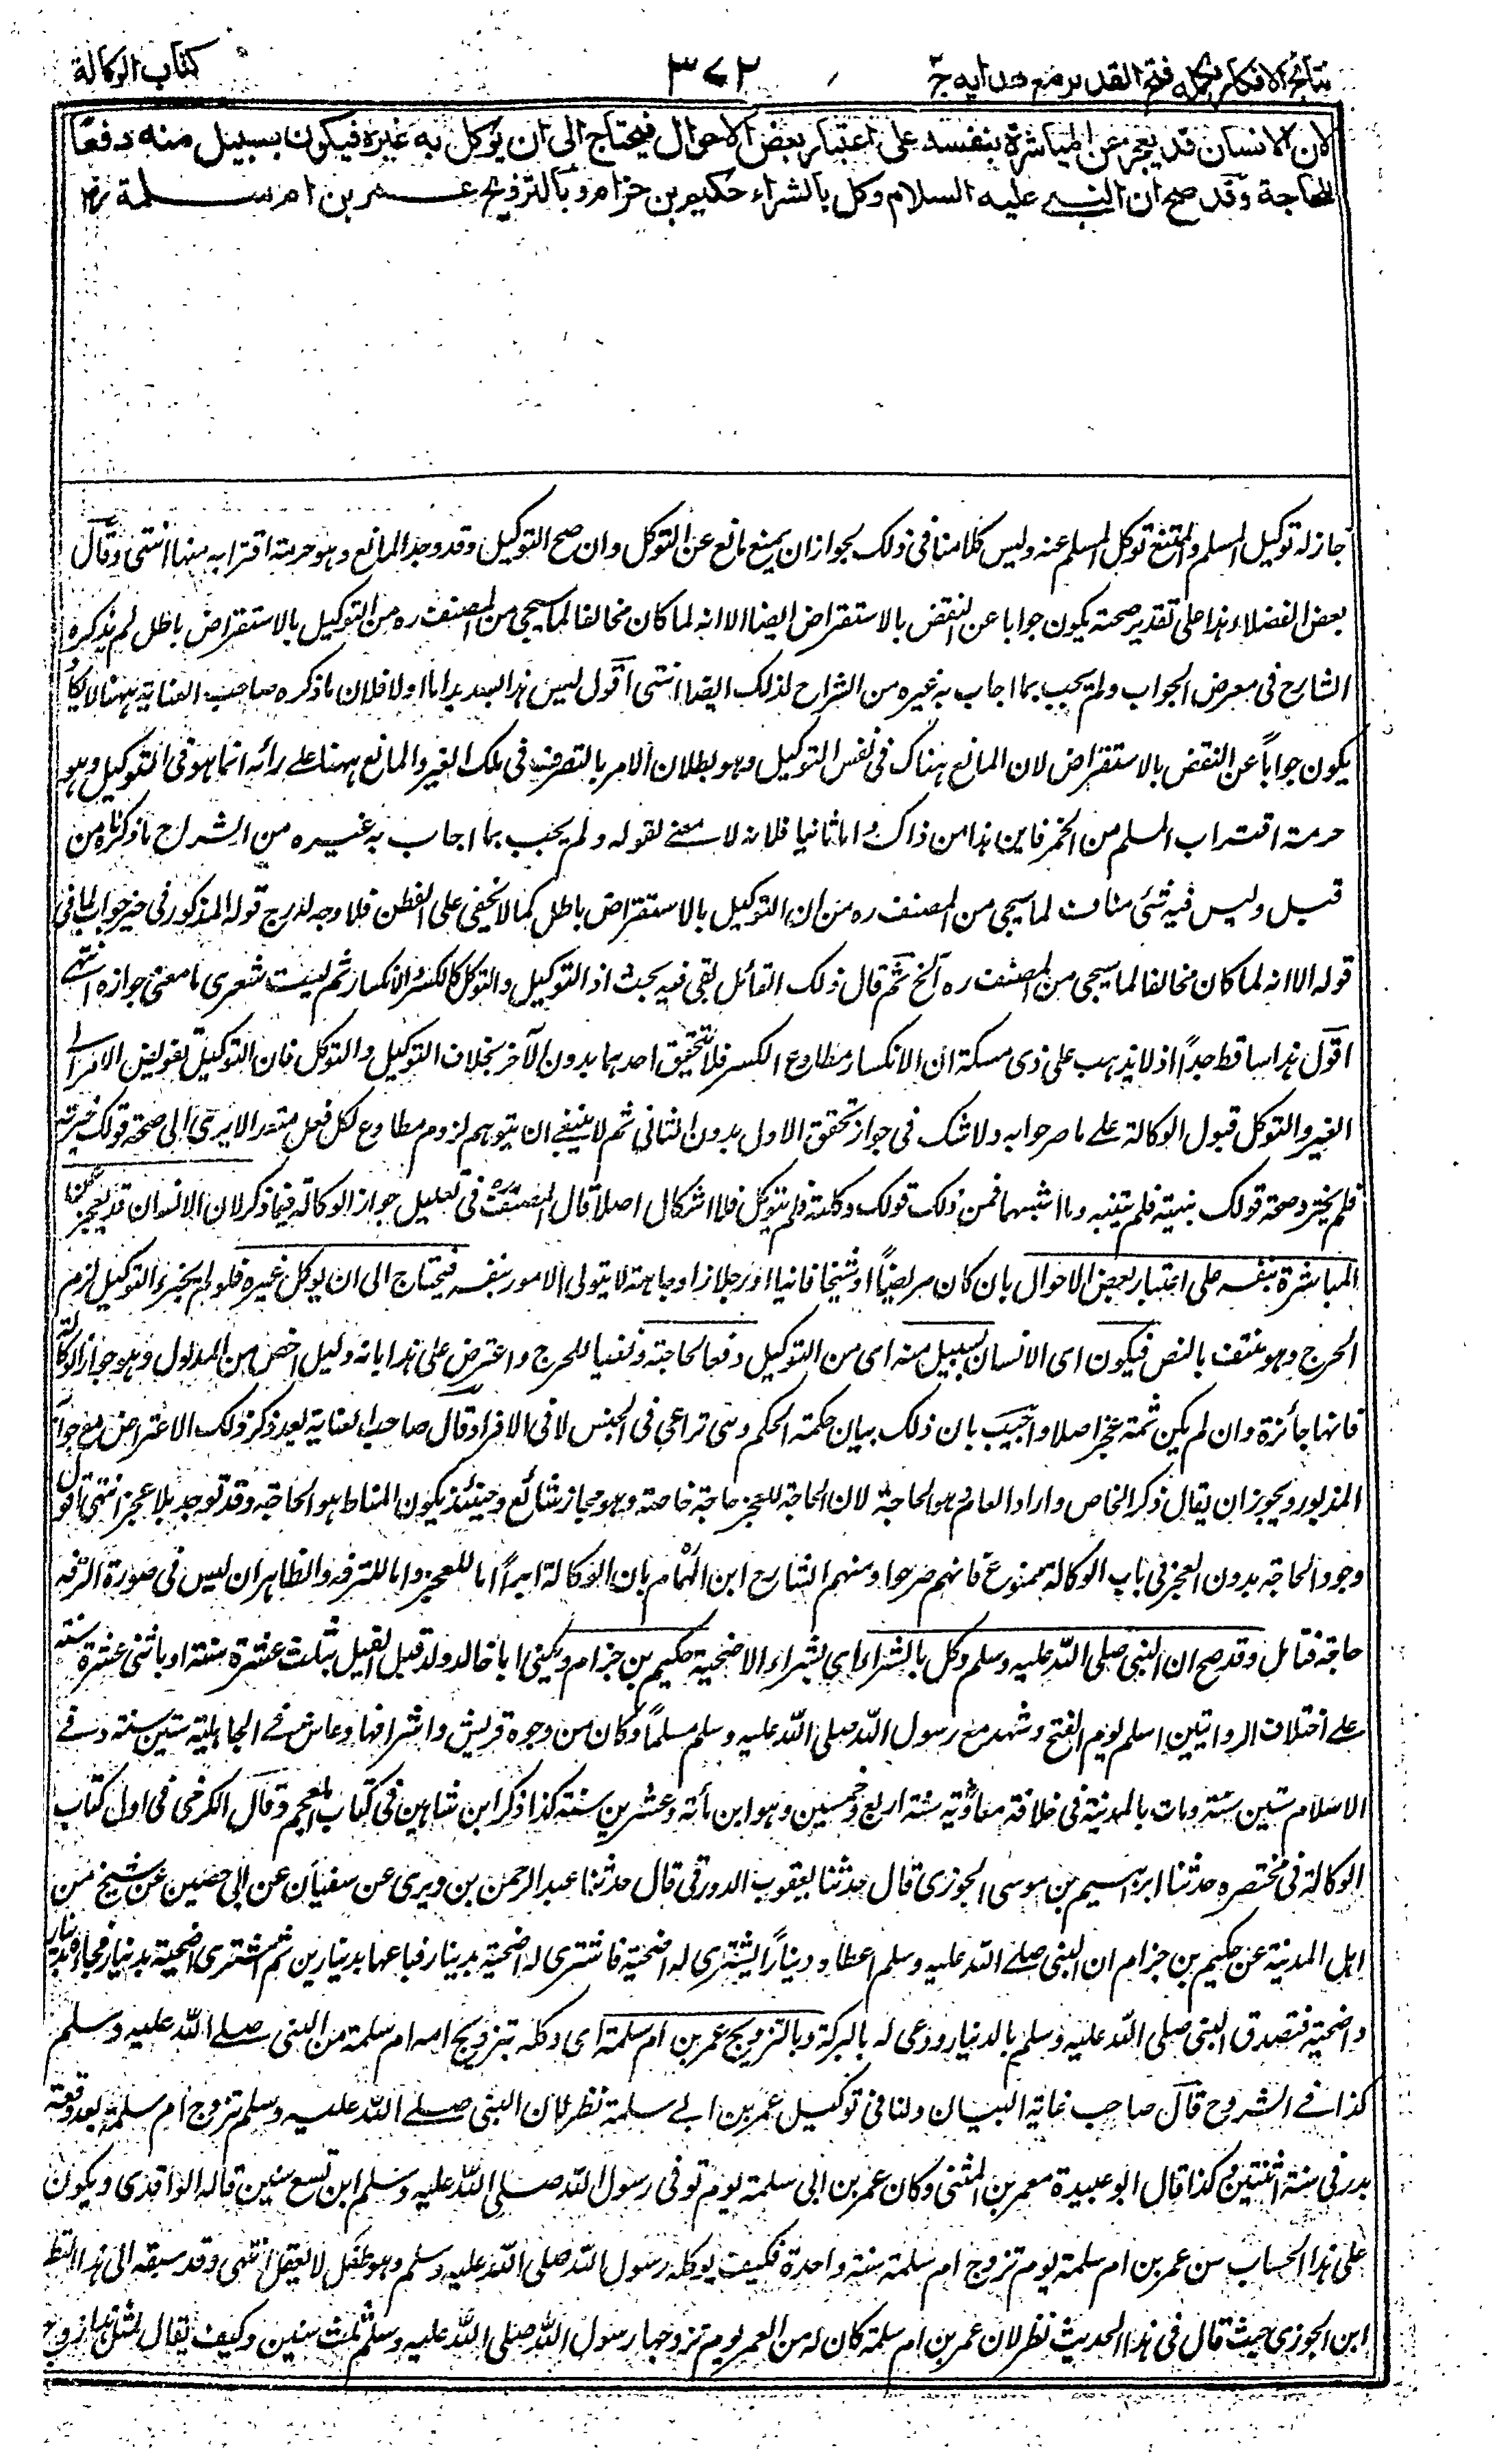 نتائج الافكار تكملہ فتح القدیر مع ھدایہ ج
٣٧٢
کتاب الوکالة
لان الانسان قد یعجز عن المباشرة بنفسه علی اعتبار بعض الاحوال فیحتاج الی ان یوکل به غیره فیکون بسبیل منه دفعًا
للحاجة وقد صح ان النبی علیه السلام وکل بالشراء حکیم بن حزام وبالتزویج عمر بن ام سلمة
جاز له توکیل المسلم والممتنع توکل المسلم عنه ولیس کلامنا فی ذلک لجواز ان یمنع مانع عن التوکل وان صح التوکیل وقد وجد المانع وهو حرمة اقترابه منها انتهی وقال
بعض الفضلاء وهذا علی تقدیر صحته یکون جوابا عن النقض بالاستقراض ایضا الا انه لما کان مخالفا لما سیجی من المصنف ره من التوکیل بالاستقراض باطل لم یذکره
الشارح فی معرض الجواب ولم یجب بما اجاب به غیره من الشراح لذلک ایضا انتهی اقول لیس هذا بسدید اما اولا فلان ما ذکره صاحب العنایة ههنا لا یکاد
یکون جواباً عن النقض بالاستقراض لان المانع هناک فی نفس التوکیل وهو بطلان الامر بالتصرف فی ملک الغیر والمانع ههنا علی رائه انما هو فی التوکل وهو
حرمة اقتراب المسلم من الخمر فاین هذا من ذاک واما ثانیا فلانه لا معنی لقوله ولم یجب بما اجاب به غیره من الشراح ما ذکرناه من
قبل ولیس فیه شئ مناف لما سیجی من المصنف ره من ان التوکیل بالاستقراض باطل کما لا یخفی علی الفطن فلا وجه لدرج قوله المذکور فی حیز جواب لما فی
قوله الا انه لما کان مخالفا لما سیجی من المصنف ره الخ ثم قال ذلک القائل بقی فیه بحث اذ التوکیل والتوکل کالکسر والانکسار ثم لیت شعری ما معنی جوازه انتهی
اقول هذا ساقط جداً اذ لا یذهب علی ذی مسکة ان الانکسار مطاوع الکسر فلا یتحقق احدهما بدون الآخر بخلاف التوکیل والتوکل فان التوکیل تفویض الامر الی
الغیر والتوکل قبول الوکالة علی ما صرحوا به ولا شک فی جواز تحقق الاول بدون الثانی ثم لا ینبغی ان یتوهم لزوم مطاوع لکل فعل متعد الا یری الی صحة قولک خیرته
فلم یختر وصحة قولک نبهته فلم یتنبه وما اشبههما فمن ذلک قولک وکلته فلم یتوکل فلا اشکال اصلا قال المصنف ره فی تعلیل جواز الوکالة فیما ذکر لان الانسان قد یعجز عن
المباشرة بنفسه علی اعتبار بعض الاحوال بان کان مریضاً او شیخا فانیا او رجلا ذا وجاهة لا یتولی الامور بنفسه فیحتاج الی ان یوکل غیره فلو لم یجز التوکیل لزم
الحرج وهو منتف بالنص فیکون ای الانسان بسبیل منه ای من التوکیل دفعا للحاجة ونفیا للحرج واعترض علی هذا بانه دلیل اخص من المدلول وهو جواز الوکالة
فانها جائزة وان لم یکن ثمة عجز اصلا واجیب بان ذلک بیان حکمة الحکم وهی تراعی فی الجنس لا فی الافراد وقال صاحب العنایة بعد ذکر ذلک الاعتراض مع جوابه
المذبور ویجوز ان یقال ذکر الخاص واراد العام وهو الحاجة لان الحاجة للعجز حاجة خاصة وهو مجاز شائع وحینئذ یکون المناط هو الحاجة وقد توجد بلا عجز انتهی اقول
وجود الحاجة بدون العجز فی باب الوکالة ممنوع فانهم صرحوا ومنهم الشارح ابن الهمام بان الوکالة ابداً اما للعجز واما للترفه والظاهر ان لیس فی صورة الترفه
حاجة فتامل وقد صح ان النبی صلی الله علیه وسلم وکل بالشراء ای بشراء الاضحیة حکیم بن حزام ویکنی ابا خالد ولد قبل الفیل بثلث عشرة سنة او باثنی عشرة سنة
علی اختلاف الروایتین اسلم یوم الفتح وشهد مع رسول الله صلی الله علیه وسلم مسلماً وکان من وجوه قریش واشرافها وعاش فی الجاهلیة ستین سنة وفی
الاسلام ستین سنة ومات بالمدینة فی خلافة معاویة سنة اربع وخمسین وهو ابن مأة وعشرین سنة کذا ذکر ابن شاهین فی کتاب المعجم وقال الکرخی فی اول کتاب
الوکالة فی مختصره حدثنا ابراهیم بن موسی الجوزی قال حدثنا یعقوب الدورقی قال حدثنا عبد الرحمن بن مهدی عن سفیان عن ابی حصین عن شیخ من
اهل المدینة عن حکیم بن حزام ان النبی صلی الله علیه وسلم اعطاه دیناراً لیشتری له اضحیة فاشتری له اضحیة بدینار فباعها بدینارین ثم اشتری اضحیة بدینار فجاء بدینار
واضحیة فتصدق النبی صلی الله علیه وسلم بالدینار ودعی له بالبرکة وبالتزویج عمر بن ام سلمة ای وکله بتزویج امه ام سلمة من النبی صلی الله علیه وسلم
کذا فی الشروح قال صاحب غایة البیان ولنا فی توکیل عمر بن ابی سلمة نظر لان النبی صلی الله علیه وسلم تزوج ام سلمة بعد وقعة
بدر فی سنة اثنتین کذا قال ابو عبیدة معمر بن المثنی وکان عمر بن ابی سلمة یوم توفی رسول الله صلی الله علیه وسلم ابن تسع سنین قاله الواقدی ویکون
علی هذا الحساب سن عمر بن ام سلمة یوم تزوج ام سلمة سنة واحدة فکیف یوکله رسول الله صلی الله علیه وسلم وهو طفل لا یعقل انتهی وقد سبقه الی هذا النظر
ابن الجوزی حیث قال فی هذا الحدیث نظر لان عمر بن ام سلمة کان له من العمر یوم تزوجها رسول الله صلی الله علیه وسلم ثلث سنین وکیف یقال لمثل هذا زوج